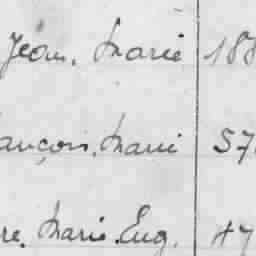 Jean. Marie 188
ançois. Marie 57
re. Marie. Eug. 47